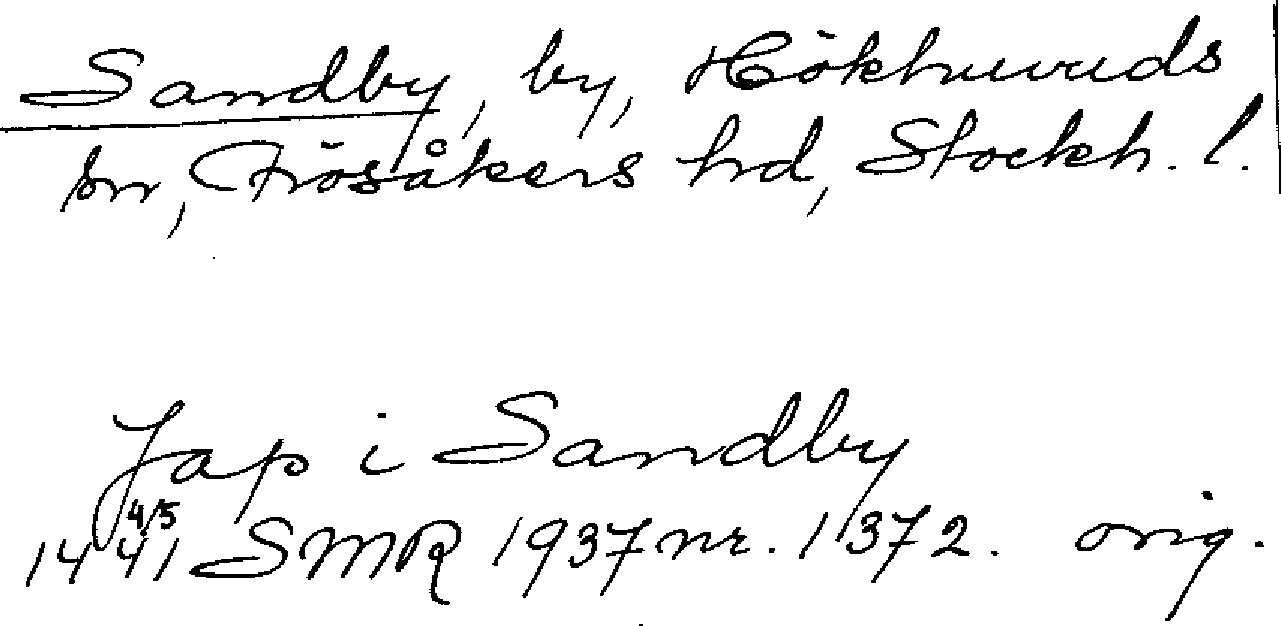 Sandby, by, Hökhuvuds
sn, Frösåkers hd, Stockh. l.
Jap i Sandby
1441 4/5 SMR 1937 nr. 1372. orig.